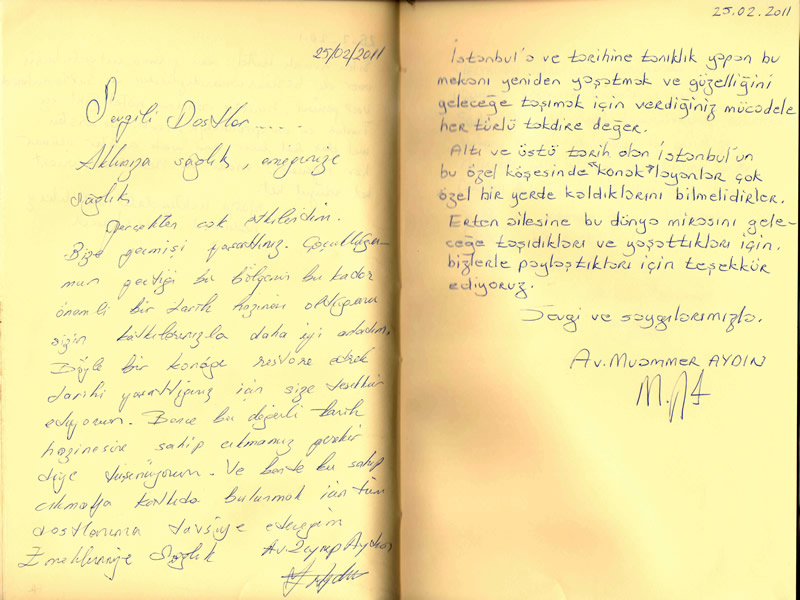 25/02/2011
Sevgili Dostlar.....
Aklınıza sağlık, emeğinize
sağlık
Gerçekten çok etkilendim.
Bize geçmişi yaşattınız. Çocukluğu-
mun geçtiği bir bölgenin bu kadar
önemli bir tarih hazinesi olduğunu
sizin katkılarınızla daha iyi anladım.
Böyle bir konağı restore ederek
tarihi yaşattığınız için size teşekkür
ediyorum. Bence bu değerli tarih
hazinesine sahip çıkmamız gerekir
diye düşünüyorum. Ve bende bu sahip
çıkmaya katkıda bulunmak için tüm
dostlarıma tavsiye edeceğim
Emeklerinize Sağlık Av. Zeynep Aydın
25.02.2011
İstanbul'a ve tarihine tanıklık yapan bu
mekanı yeniden yaşatmak ve güzelliğini
geleceğe taşımak için verdiğiniz mücadele
her türlü takdire değer.
Altı ve üstü tarih olan İstanbul'un
bu özel köşesinde "konak"layanlar çok
özel bir yerde kaldıklarını bilmelidirler.
Erten ailesine bu dünya mirasını gele-
ceğe taşıdıkları ve yaşattıkları için,
bizlerle paylaştıkları için teşekkür
ediyoruz.
Sevgi ve saygılarımızla.
Av. Muammer AYDIN